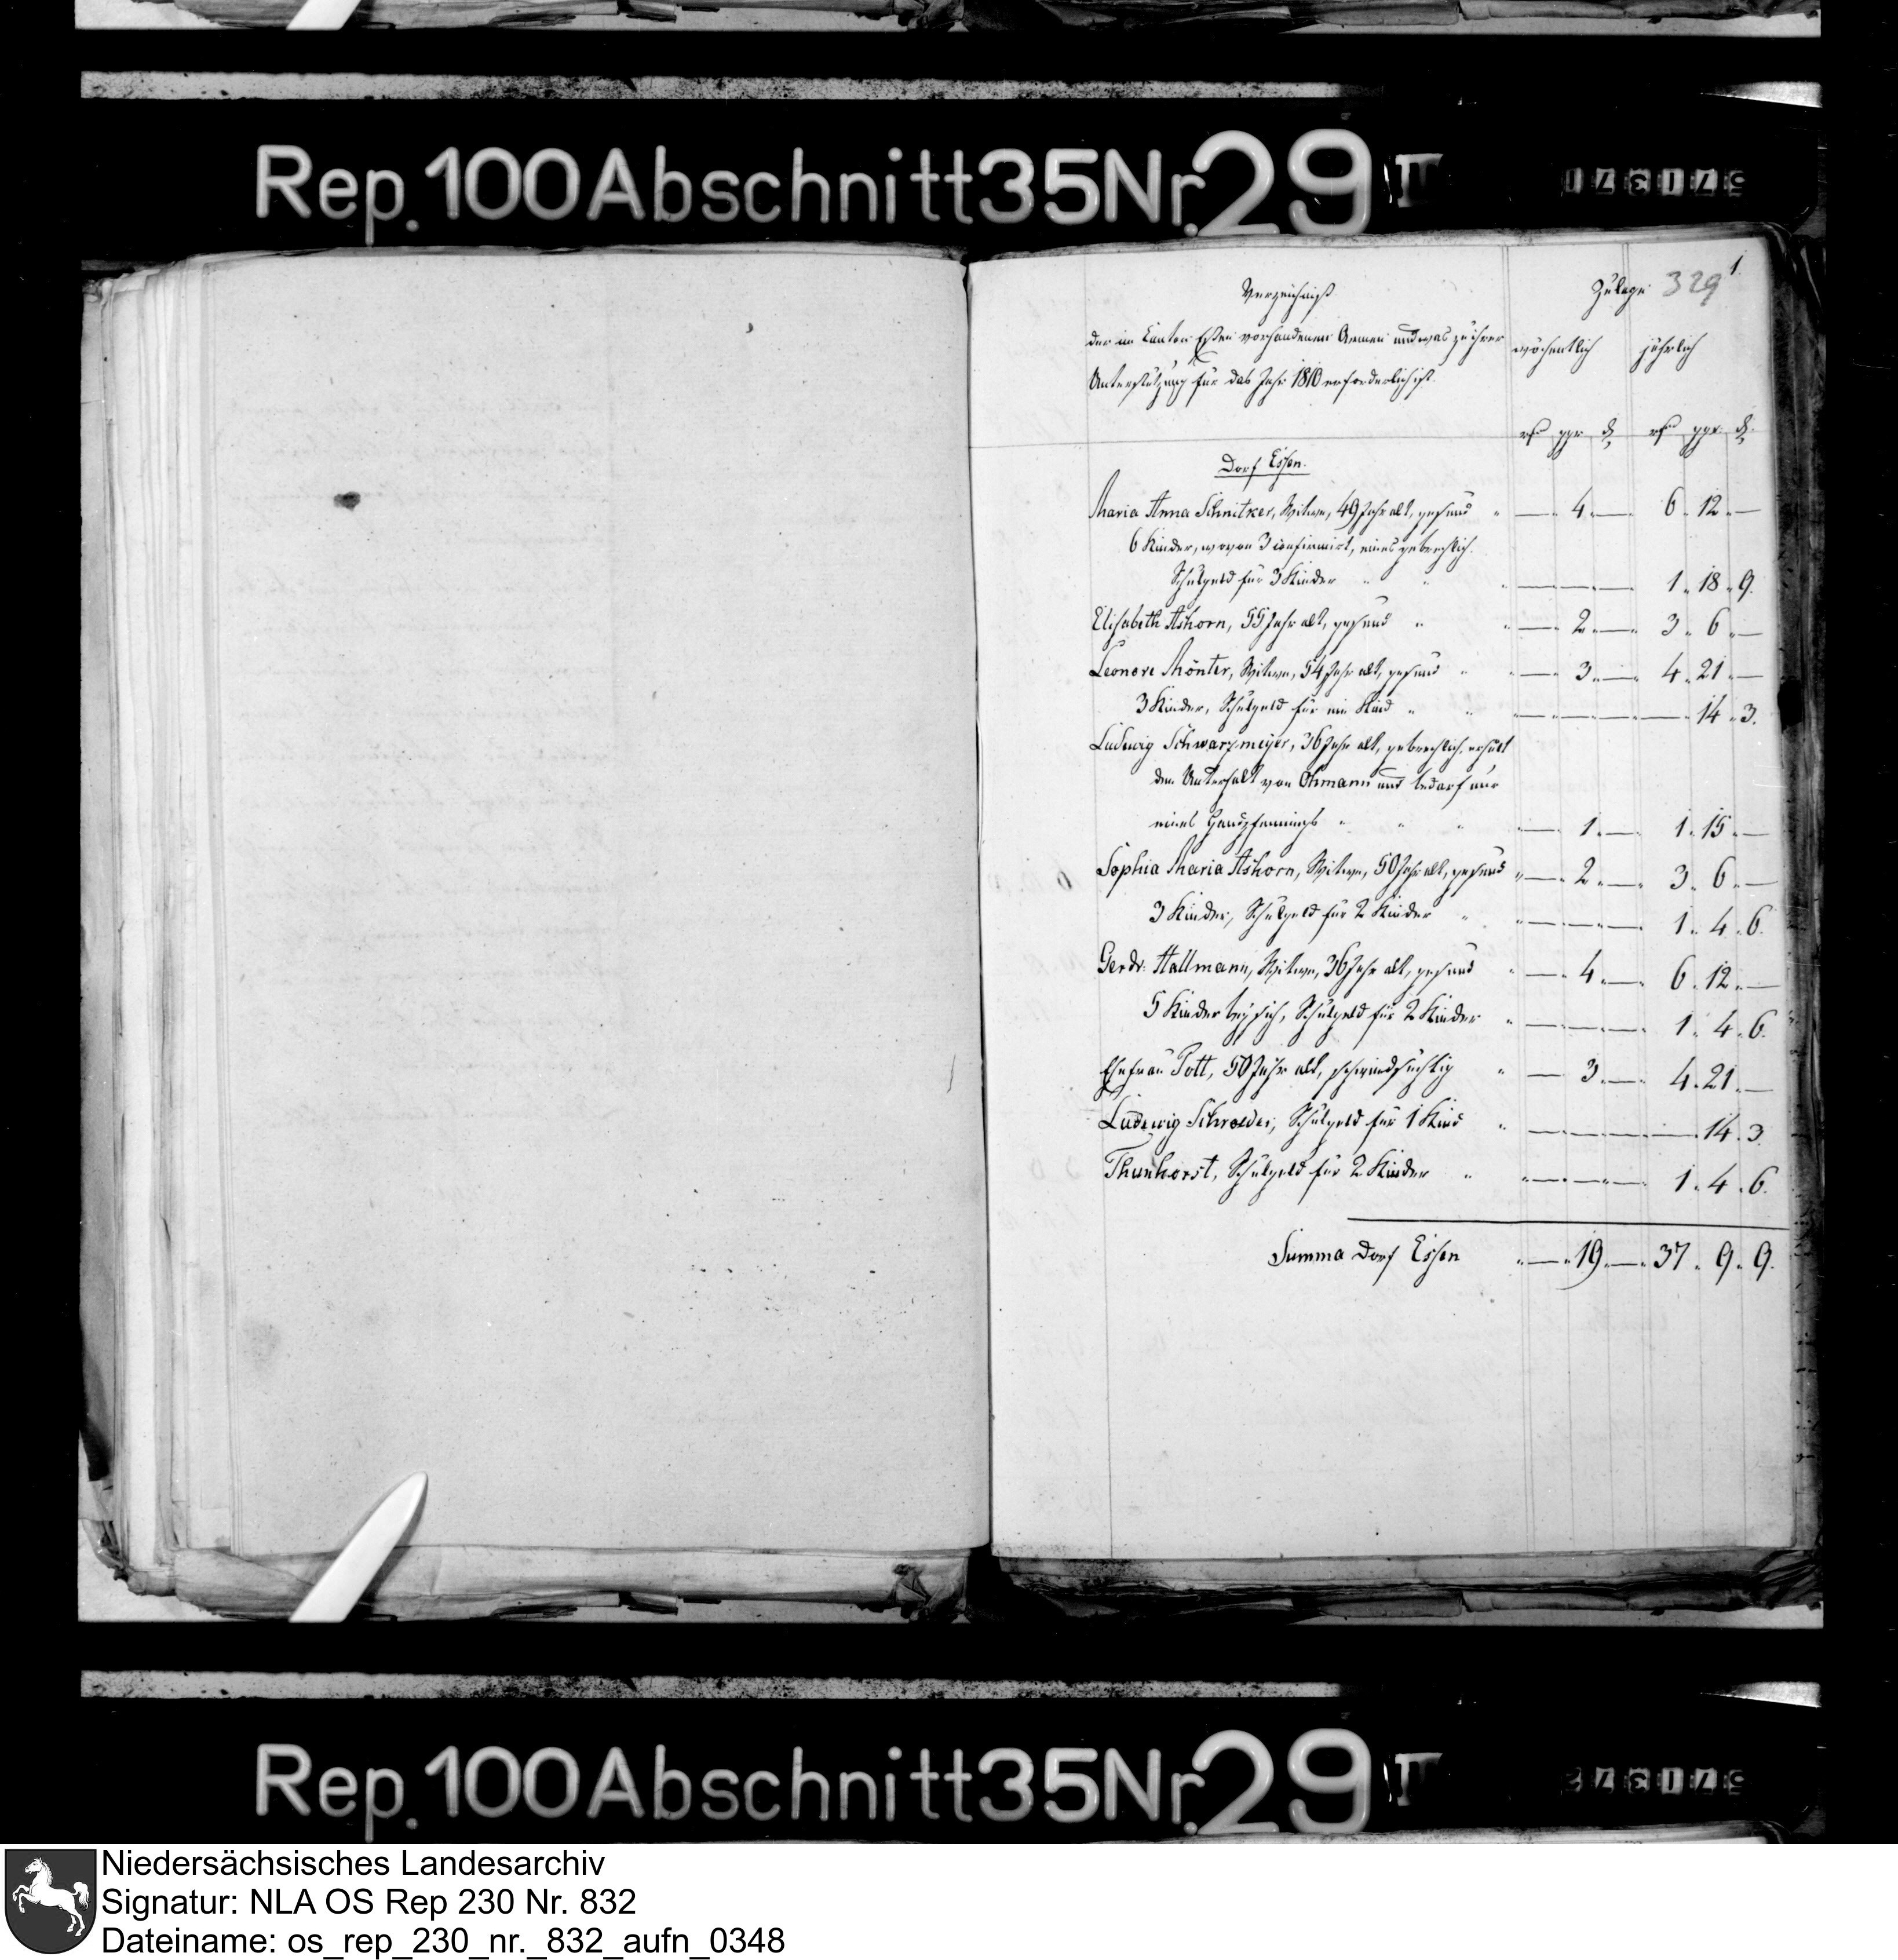 Rep. 100 Abschnitt 35 Nr. 29 II
571371
329
1.
Verzeichniß
der im Canton Essen vorhandenen Armen und was zu ihrer
Unterstützung für das Jahr 1810 erforderlich ist.
Zulage
wöchentlich jährlich
rℓ ggr ₰ rℓ ggr ₰
Dorf Essen.
Maria Anna Schnitker, Witwe, 49 Jahr alt, gesund " — 4 — 6. 12. —
6 Kinder, wovon 3 confirmirt, eines gebrechlich.
Schulgeld für 3 Kinder " " " — — — 1. 18. 9.
Elisabeth Ashorn, 55 Jahr alt, gesund " — 2 — 3. 6. —
Leonore Mönter, Witwe, 54 Jahr alt, gesund " — 3 — 4. 21. —
3 Kinder, Schulgeld für ein Kind " " — — — — 14. 3.
Ludewig Schwarzmeyer, 36 Jahr alt, gebrechlich, erhält
den Unterhalt von Ohmann und bedarf nur
eines Handpfennings " " " — 1 — 1. 15. —
Sophia Maria Ashorn, Witwe, 50 Jahr alt, gesund " — 2 — 3. 6. —
3 Kinder, Schulgeld für 2 Kinder " — — — 1. 4. 6.
Gerdr. Hallmann, Witwe, 36 Jahr alt, gesund " — 4 — 6. 12. —
5 Kinder bey sich, Schulgeld für 2 Kinder " — — — 1. 4. 6.
Ehefrau Pott, 50 Jahr alt, schwindsüchtig " — 3 — 4. 21. —
Ludewig Schroeder, Schulgeld für 1 Kind " — — — — 14. 3.
Thunhorst, Schulgeld für 2 Kinder " — — — 1. 4. 6.
Summa Dorf Essen " — 19 — 37. 9. 9.
Rep. 100 Abschnitt 35 Nr. 29 II
571372
Niedersächsisches Landesarchiv
Signatur: NLA OS Rep 230 Nr. 832
Dateiname: os_rep_230_nr._832_aufn_0348